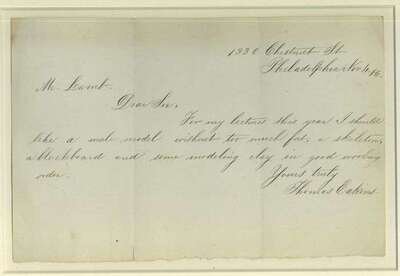 1330 Chestnut St.
Philadelphia Nov. 4
Mr.
Dear Sir,
For my lectures this year I should
like a male model without too much fat, a skeleton,
a blackboard and some modeling clay in good working
order.
Yours truly
Thomas Eakins